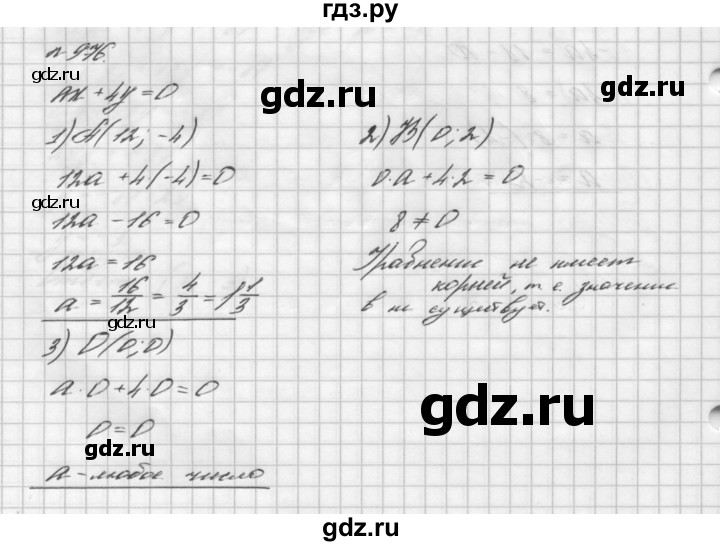 гдз.ру
n 976.
ax + 4y = 0
1) A(12; -4)
12a + 4(-4) = 0
12a - 16 = 0
12a = 16
a = 16/12 = 4/3 = 1 1/3
2) B(0; 2)
0·a + 4·2 = 0
8 ≠ 0
Уравнение не имеет
корней, т.е. значение
в не существует.
3) D(0; 0)
a·0 + 4·0 = 0
0 = 0
a - любое число
gdz.ru
gdz.ru
gdz.ru
gdz.ru
gdz.ru
gdz.ru
gdz.ru